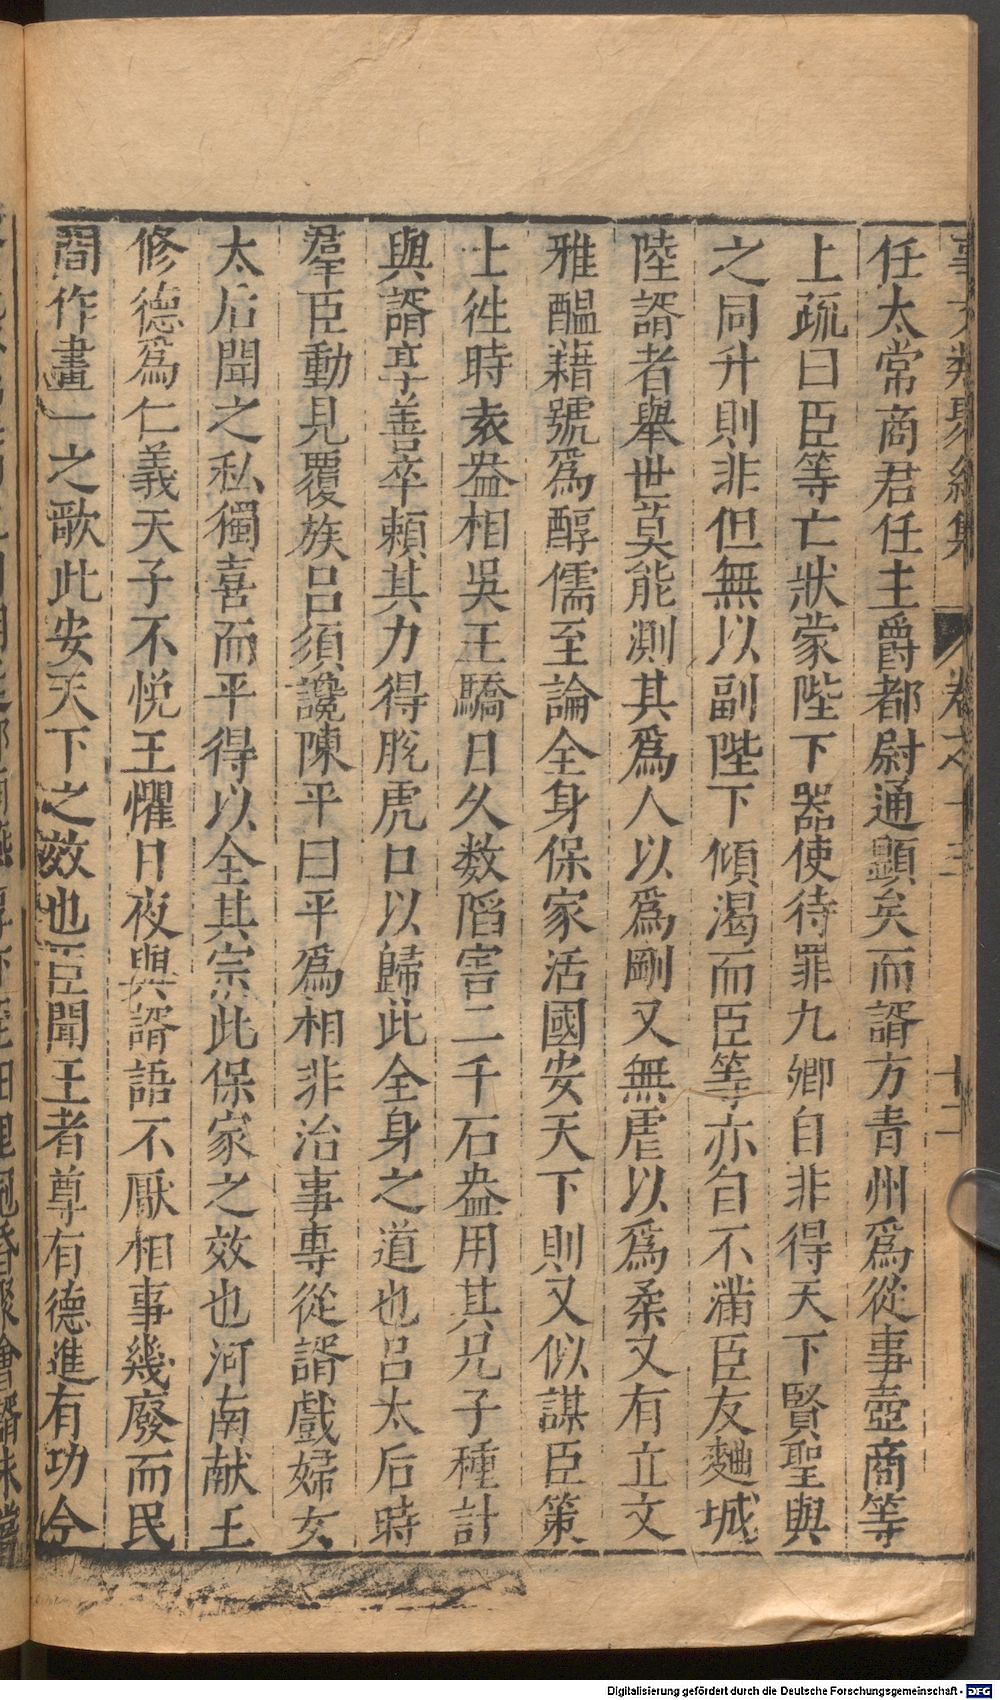 事文類聚續集 卷之十三 十二
任太常商君任主爵都尉通顯矣而諝方青州爲從事壺商等
上疏曰臣等亡狀蒙陛下器使待罪九卿自非得天下賢聖與
之同升則非但無以副陛下傾渴而臣等亦自不滿臣友麯城
陸諝者舉世莫能測其爲人以爲剛又無虐以爲柔又有立文
雅醖藉號爲醇儒至論全身保家活國安天下則又似謀臣策
士徃時𡊮盎相吳王驕日久数䧟害二千石盎用其兄子種計
與諝𠅤善卒頼其力得脫虎口以歸此全身之道也吕太后時
羣臣動見覆族吕須讒陳平曰平爲相非治事專從諝戲婦女
太后聞之私獨喜而平得以全其宗此保家之效也河南献王
修德爲仁義天子不悅王懼日夜與諝語不厭相事幾廢而民
間作畫一之歌此安天下之效也臣聞王者尊有德進有功今
Digitalisierung gefördert durch die Deutsche Forschungsgemeinschaft - DFG